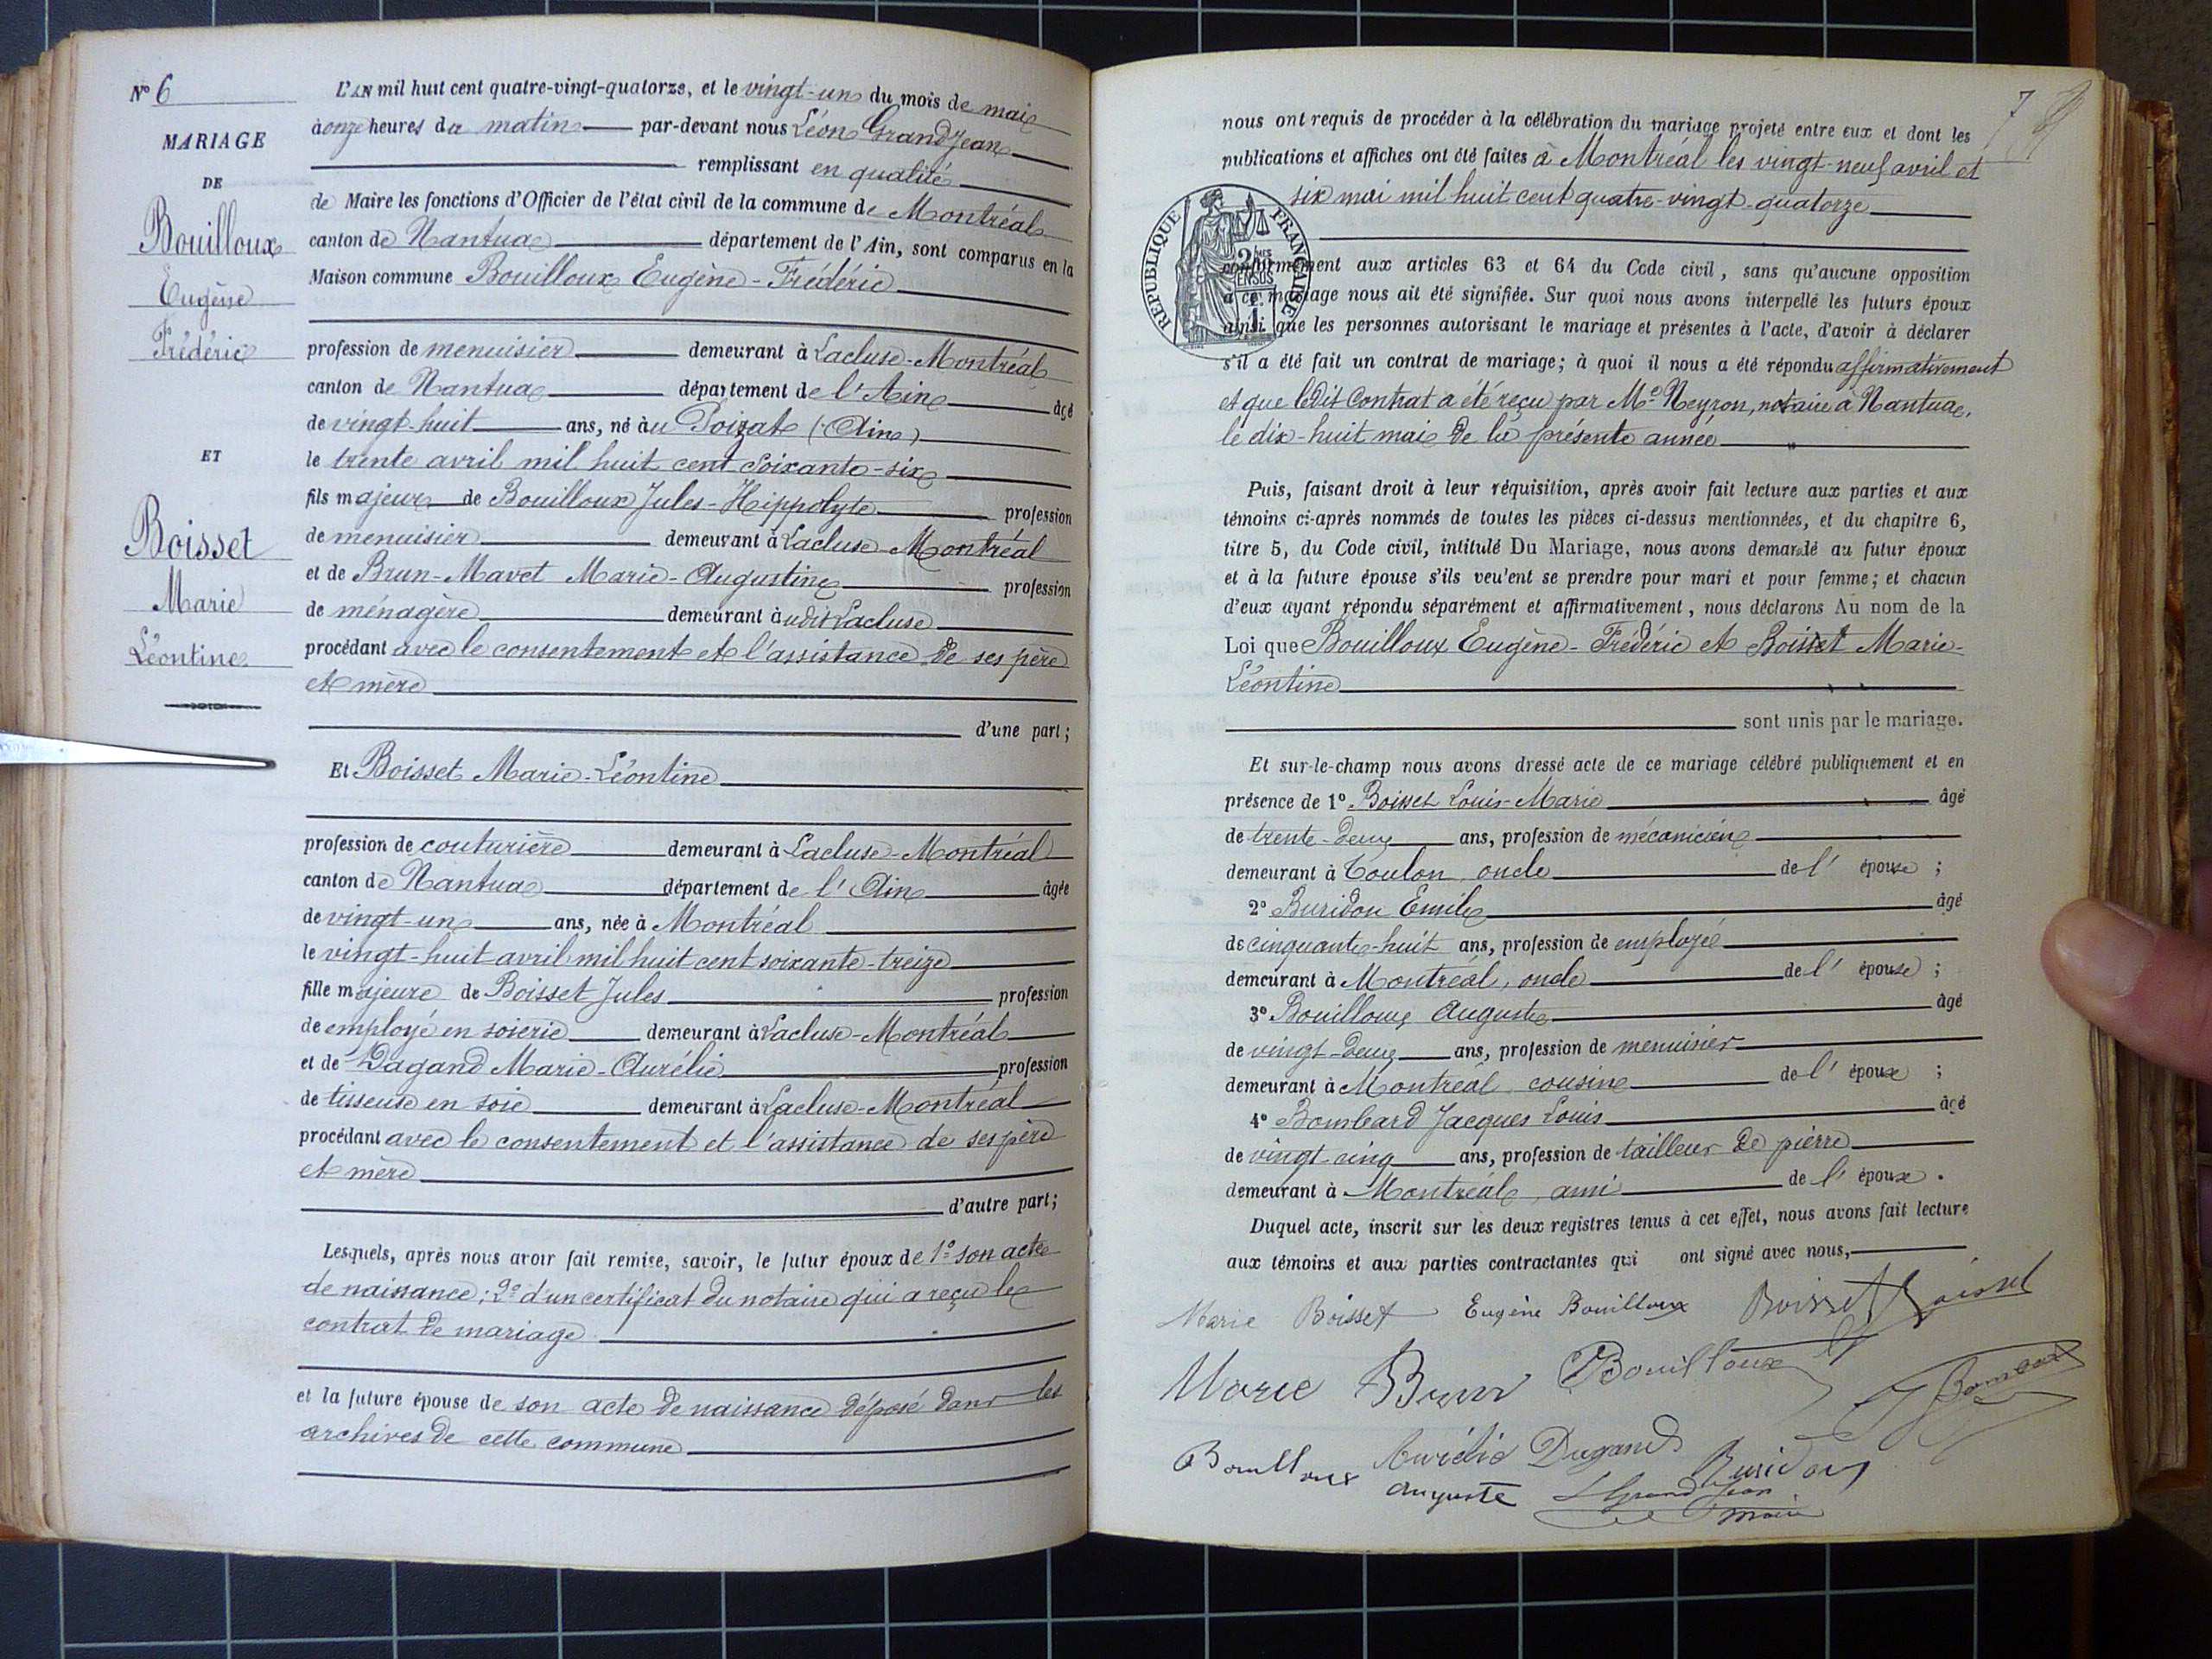 N° 6
MARIAGE
DE
Bouilloux
Eugène
Frédéric
ET
Boisset
Marie
Léontine
L'AN mil huit cent quatre-vingt-quatorze, et le vingt-un du mois de mai
à onze heures du matin par-devant nous Léon Grandjean
remplissant en qualité
de Maire les fonctions d'Officier de l'état civil de la commune de Montréal
canton de Nantua département de l'Ain, sont comparus en la
Maison commune Bouilloux Eugène-Frédéric
profession de menuisier demeurant à Lacluse-Montréal
canton de Nantua département de l'Ain âgé
de vingt-huit ans, né au Poizat (Ain)
le trente avril mil huit cent soixante-six
fils majeur de Bouilloux Jules-Hippolyte profession
de menuisier demeurant à Lacluse-Montréal
et de Brun-Mavet Marie-Augustine profession
de ménagère demeurant à udit Lacluse
procédant avec le consentement et l'assistance de ses père
et mère
d'une part;
Et Boisset Marie-Léontine
profession de couturière demeurant à Lacluse-Montréal
canton de Nantua département de l'Ain âgée
de vingt-un ans, née à Montréal
le vingt-huit avril mil huit cent soixante-treize
fille majeure de Boisset Jules profession
de employé en soierie demeurant à Lacluse-Montréal
et de Dagand Marie-Aurélie profession
de tisseuse en soie demeurant à Lacluse-Montréal
procédant avec le consentement et l'assistance de ses père
et mère
d'autre part;
Lesquels, après nous avoir fait remise, savoir, le futur époux de 1° son acte
de naissance; 2° d'un certificat du notaire qui a reçu le
contrat de mariage
et la future épouse de son acte de naissance déposé dans les
archives de cette commune
7
nous ont requis de procéder à la célébration du mariage projeté entre eux et dont les
publications et affiches ont été faites à Montréal les vingt-neuf avril et
six mai mil huit cent quatre-vingt-quatorze
REPUBLIQUE FRANÇAISE
conformément aux articles 63 et 64 du Code civil, sans qu'aucune opposition
à ce mariage nous ait été signifiée. Sur quoi nous avons interpellé les futurs époux
ainsi que les personnes autorisant le mariage et présentes à l'acte, d'avoir à déclarer
s'il a été fait un contrat de mariage; à quoi il nous a été répondu affirmativement
et que ledit Contrat a été reçu par Me Neyron, notaire à Nantua,
le dix-huit mai de la présente année
Puis, faisant droit à leur réquisition, après avoir fait lecture aux parties et aux
témoins ci-après nommés de toutes les pièces ci-dessus mentionnées, et du chapitre 6,
titre 5, du Code civil, intitulé Du Mariage, nous avons demandé au futur époux
et à la future épouse s'ils veulent se prendre pour mari et pour femme; et chacun
d'eux ayant répondu séparément et affirmativement, nous déclarons Au nom de la
Loi que Bouilloux Eugène-Frédéric et Boisset Marie-
Léontine
sont unis par le mariage.
Et sur-le-champ nous avons dressé acte de ce mariage célébré publiquement et en
présence de 1° Boisset Louis-Marie âgé
de trente-deux ans, profession de mécanicien
demeurant à Toulon, oncle de l'épouse;
2° Buridon Emile âgé
de cinquante-huit ans, profession de employé
demeurant à Montréal, oncle de l'épouse;
3° Bouilloux Auguste âgé
de vingt-deux ans, profession de menuisier
demeurant à Montréal cousin de l'époux;
4° Bombard Jacques Louis âgé
de vingt-cinq ans, profession de tailleur de pierre
demeurant à Montréal, ami de l'époux.
Duquel acte, inscrit sur les deux registres tenus à cet effet, nous avons fait lecture
aux témoins et aux parties contractantes qui ont signé avec nous,
Marie Boisset Eugène Bouilloux Boisset Boisset
Marie Brun Bouilloux
Bouilloux Aurélie Dagand Buridon
auguste LGrandJean
maire